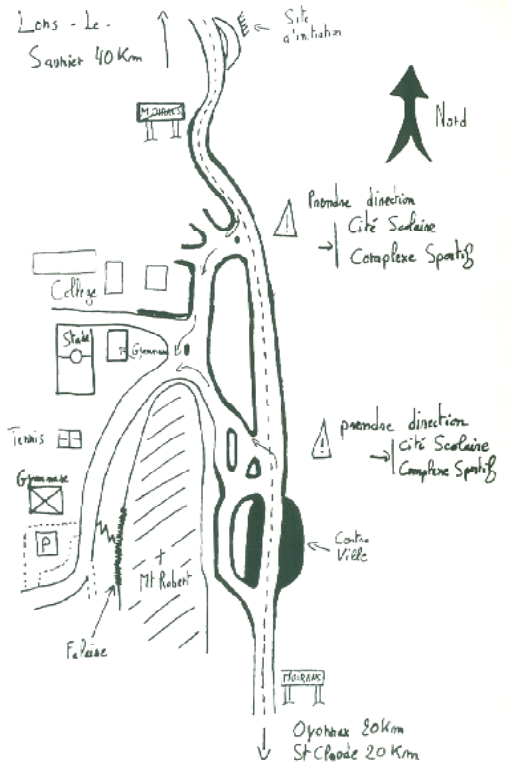 Lons - Le -
Saunier 40 Km
Site
d'initiation
MOIRANS
Nord
Prendre direction
Cité Scolaire
Complexe Sportif
Collège
Stade
Gymnase
prendre direction
Cité Scolaire
Complexe Sportif
Tennis
Gymnase
P
Centre
Ville
Mt Robert
Falaise
MOIRANS
Oyonnax 20Km
St Claude 20 Km